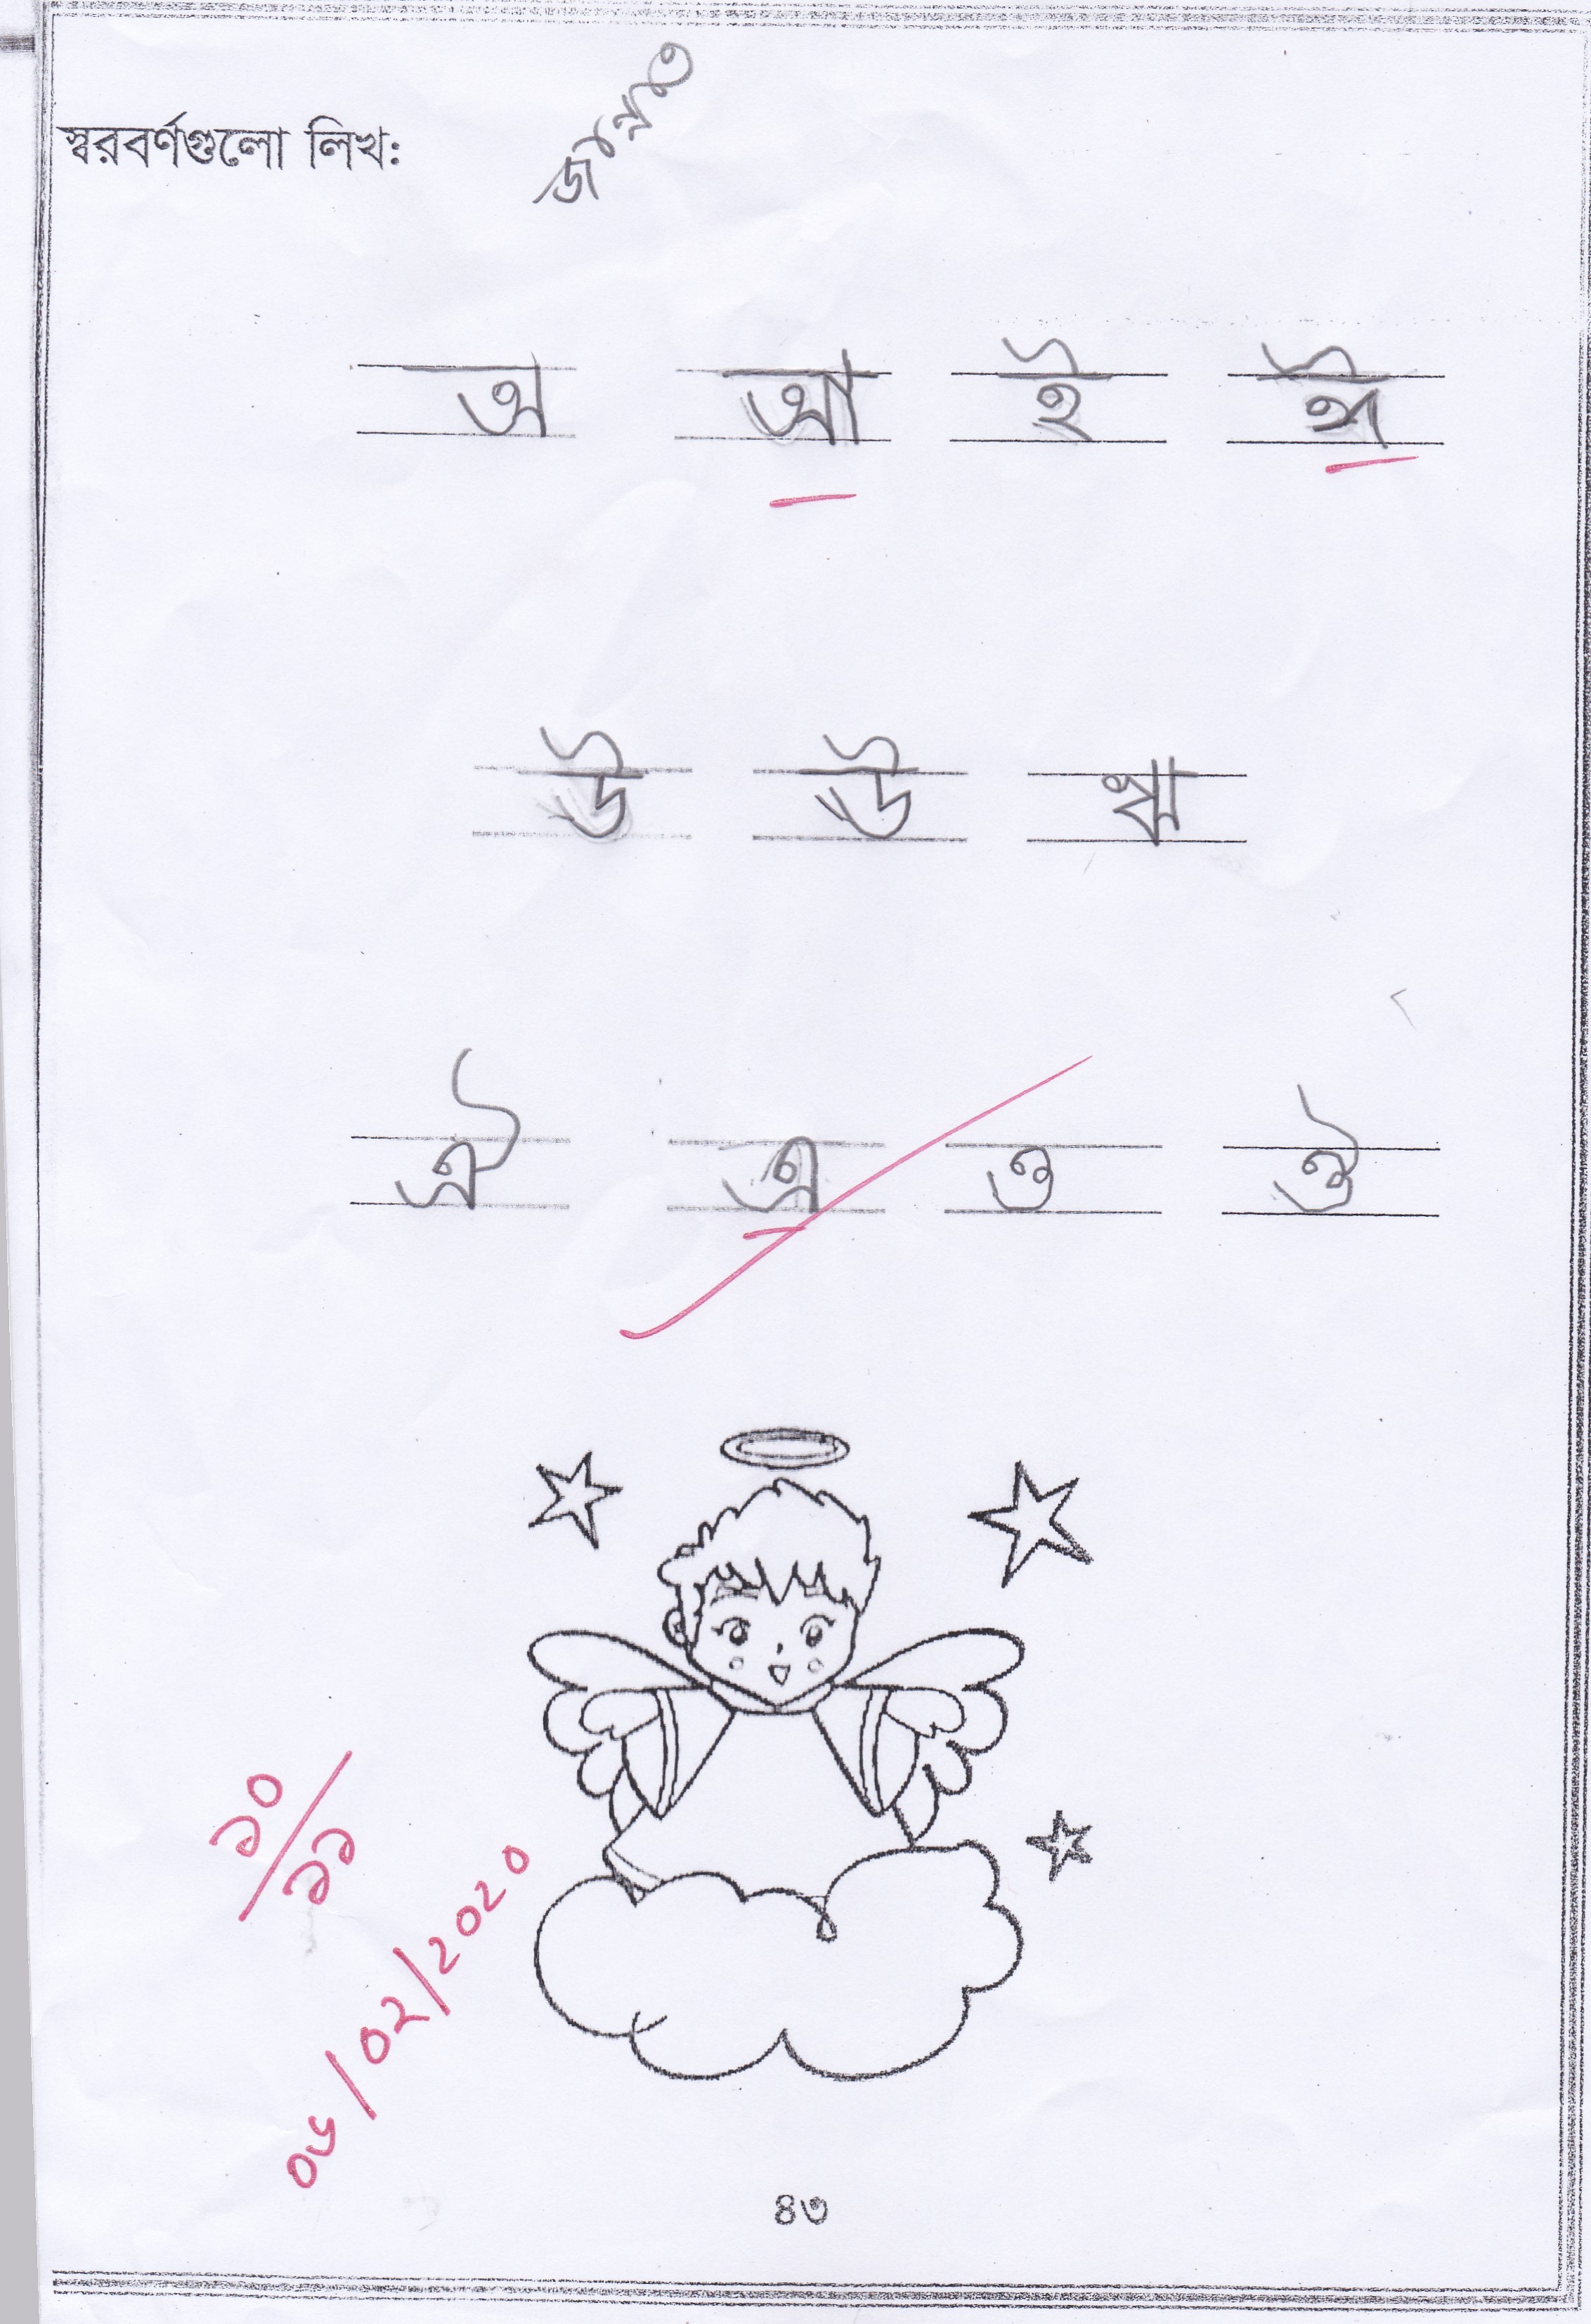 স্বরবর্ণগুলো লিখ:
জান্নাত
অ আ ই ঈ
উ ঊ ঋ
ঐ এ ও ঔ
১০/১১
০৬/০২/২০২০
৪৩